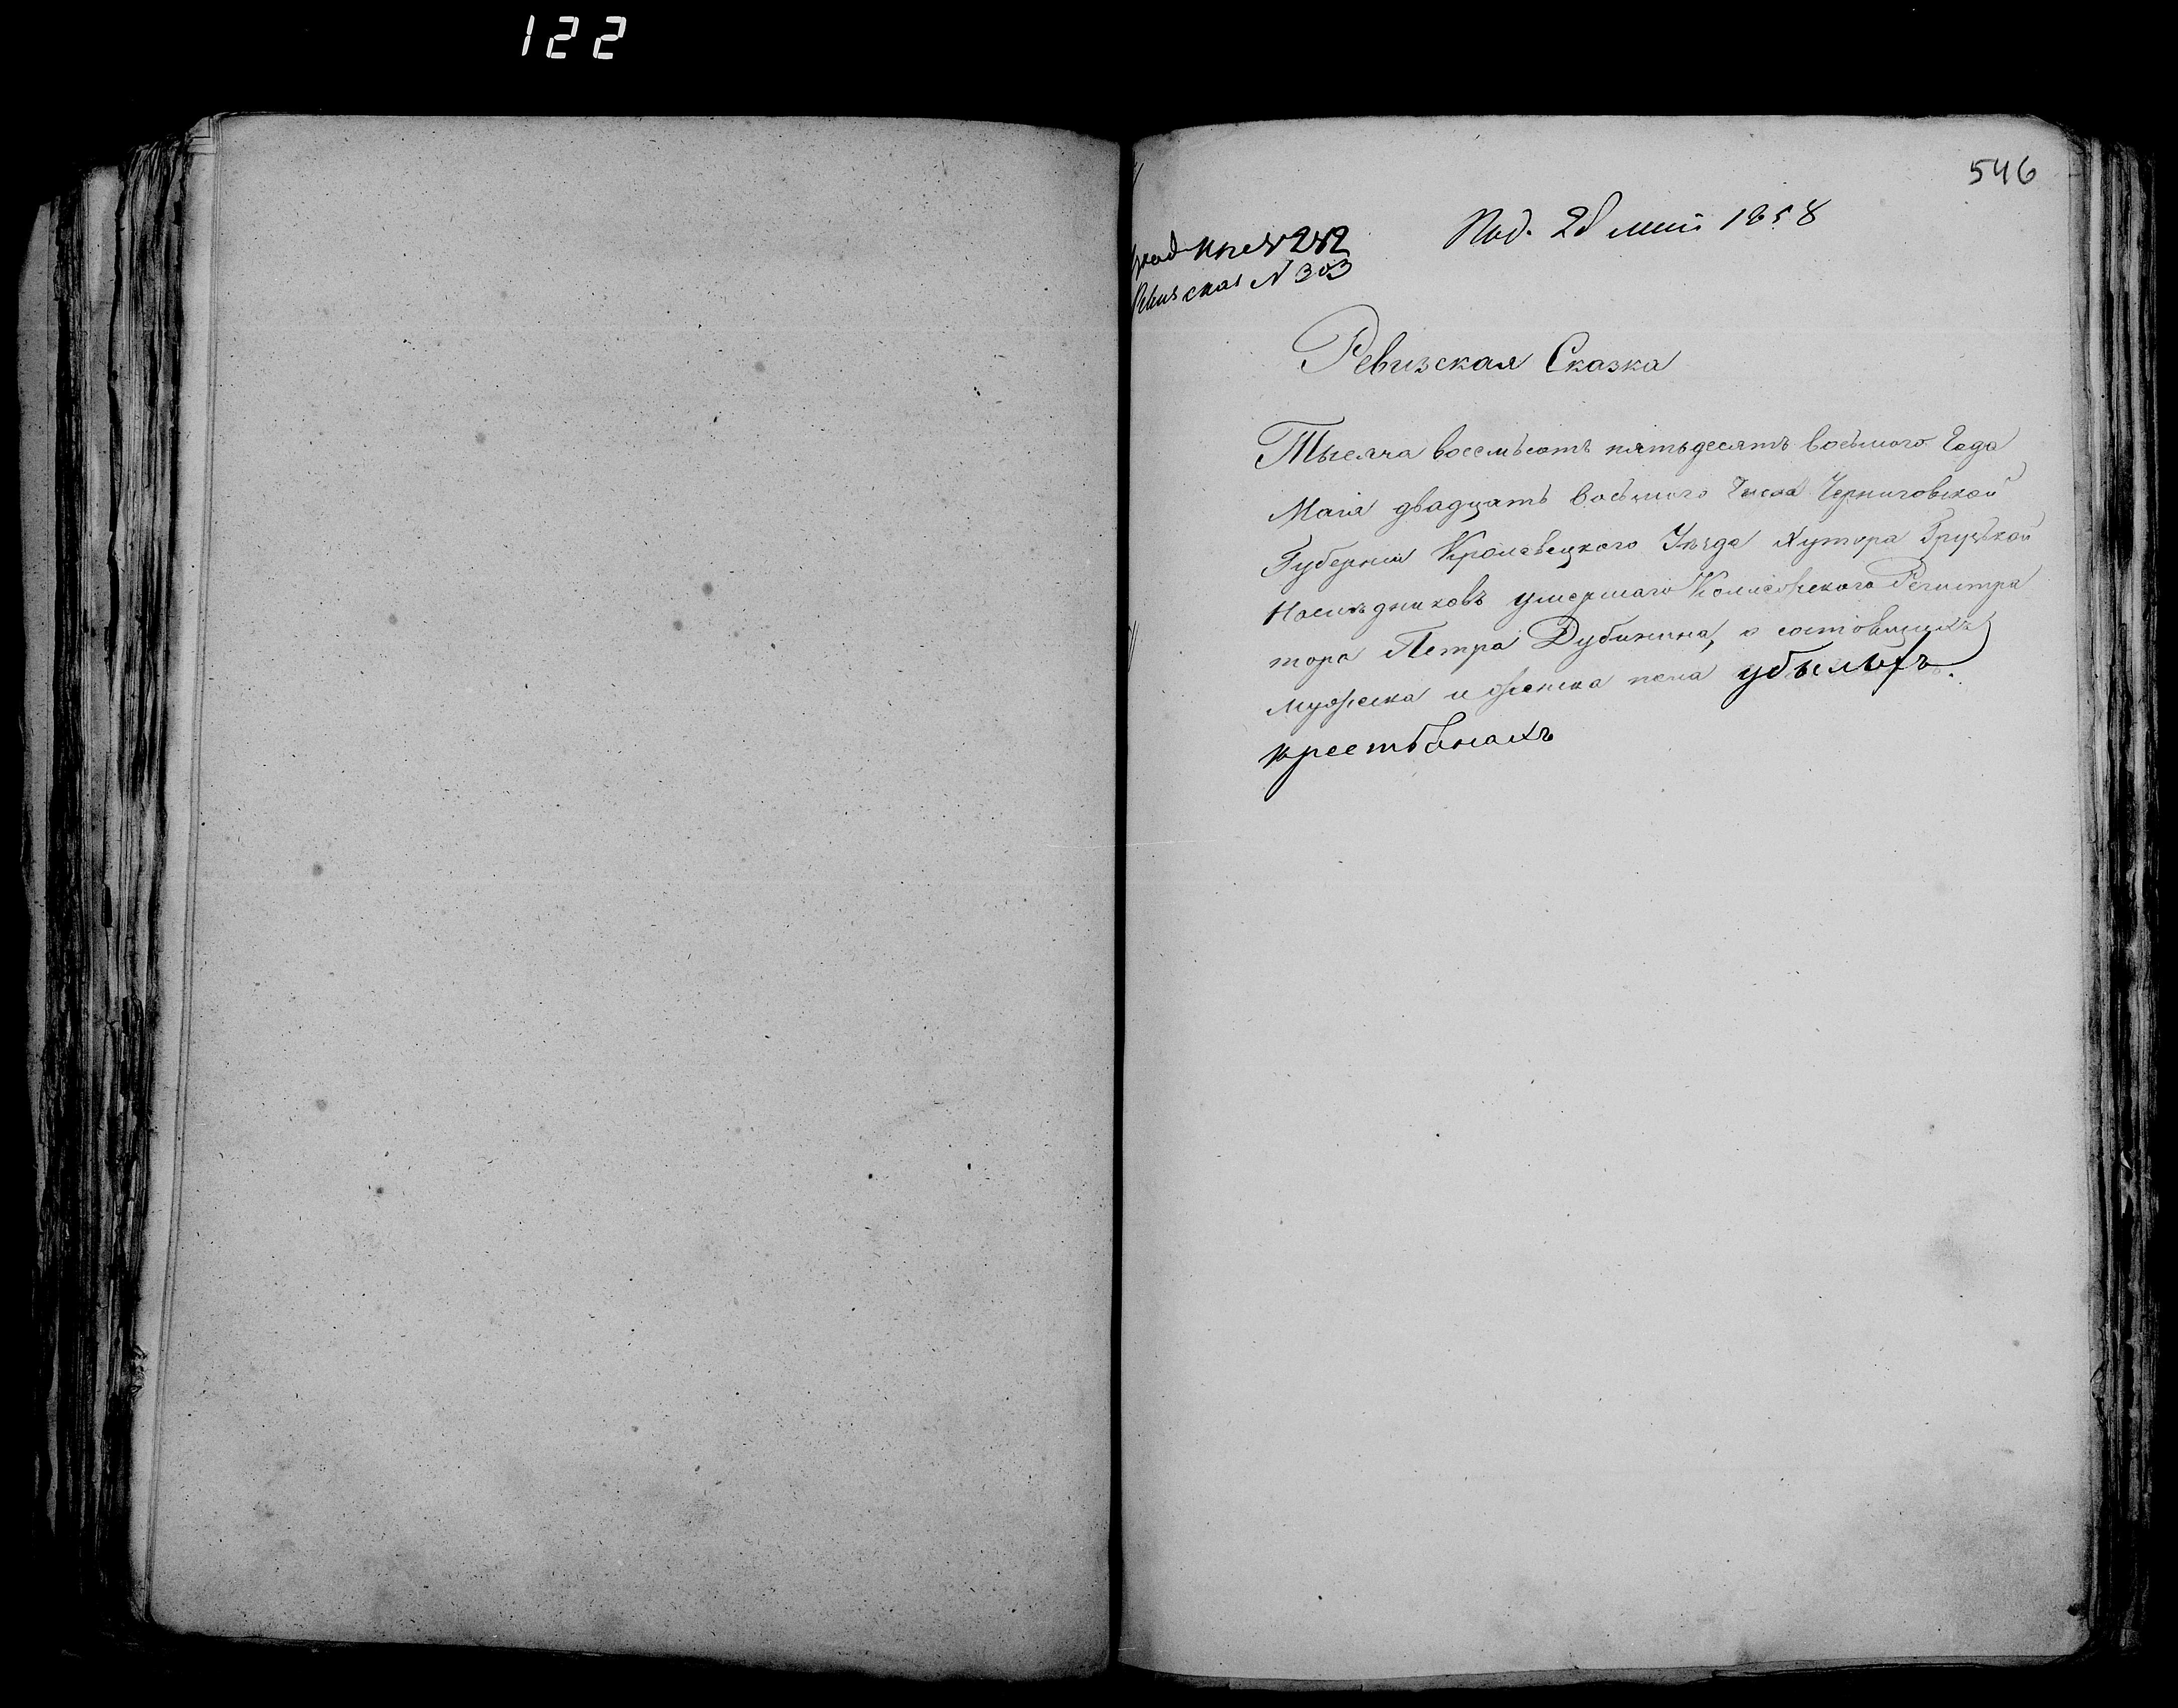 122
546
Под. 28 мая 1858
N 242
Ревизская N 303
Ревизская Сказка
Тысяча восемьсотъ пятьдесятъ восьмого Года
Маия двадцать восьмого Числа Черниговской
Губернии Кролевецкого Уезда Хутора Груцкой
Наследниковъ умершаго Колежского Регистра
тора Петра Дубинина, о состоящихъ
мужеска и женска пола убылыхъ.
крестьянахъ